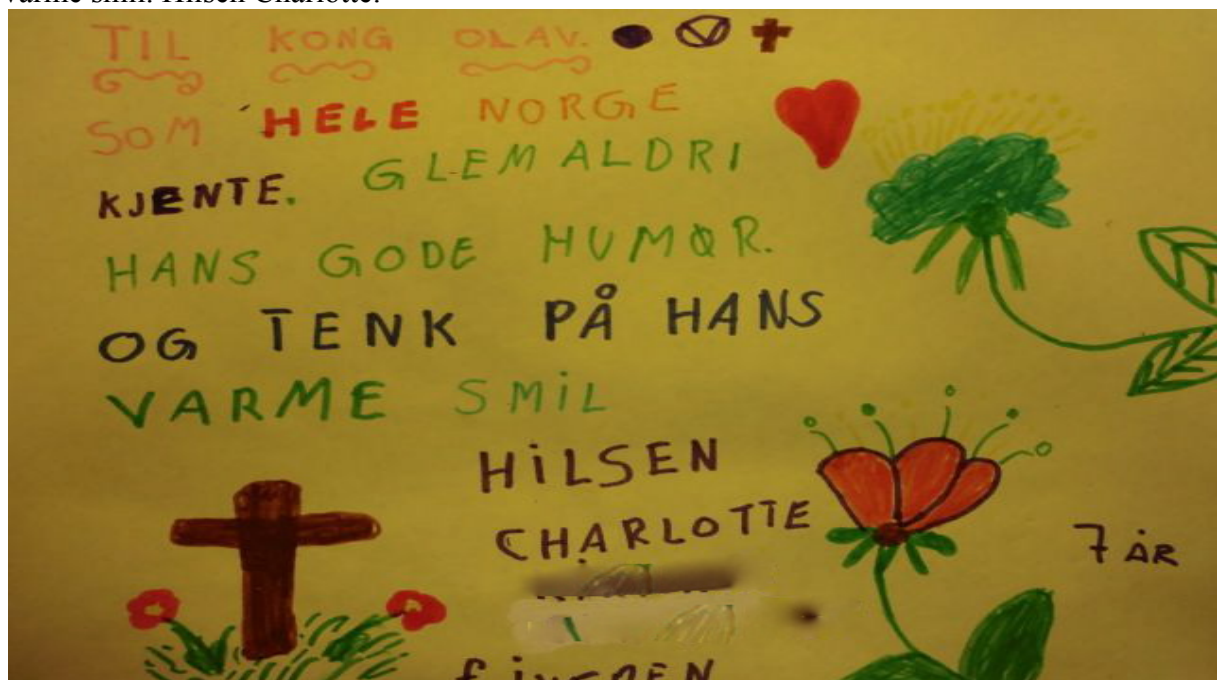 varme smil. Hilsen Charlotte.
TIL KONG OLAV.
SOM HELE NORGE
KJENTE. GLEM ALDRI
HANS GODE HUMØR.
OG TENK PÅ HANS
VARME SMIL
HILSEN
CHARLOTTE
7 ÅR